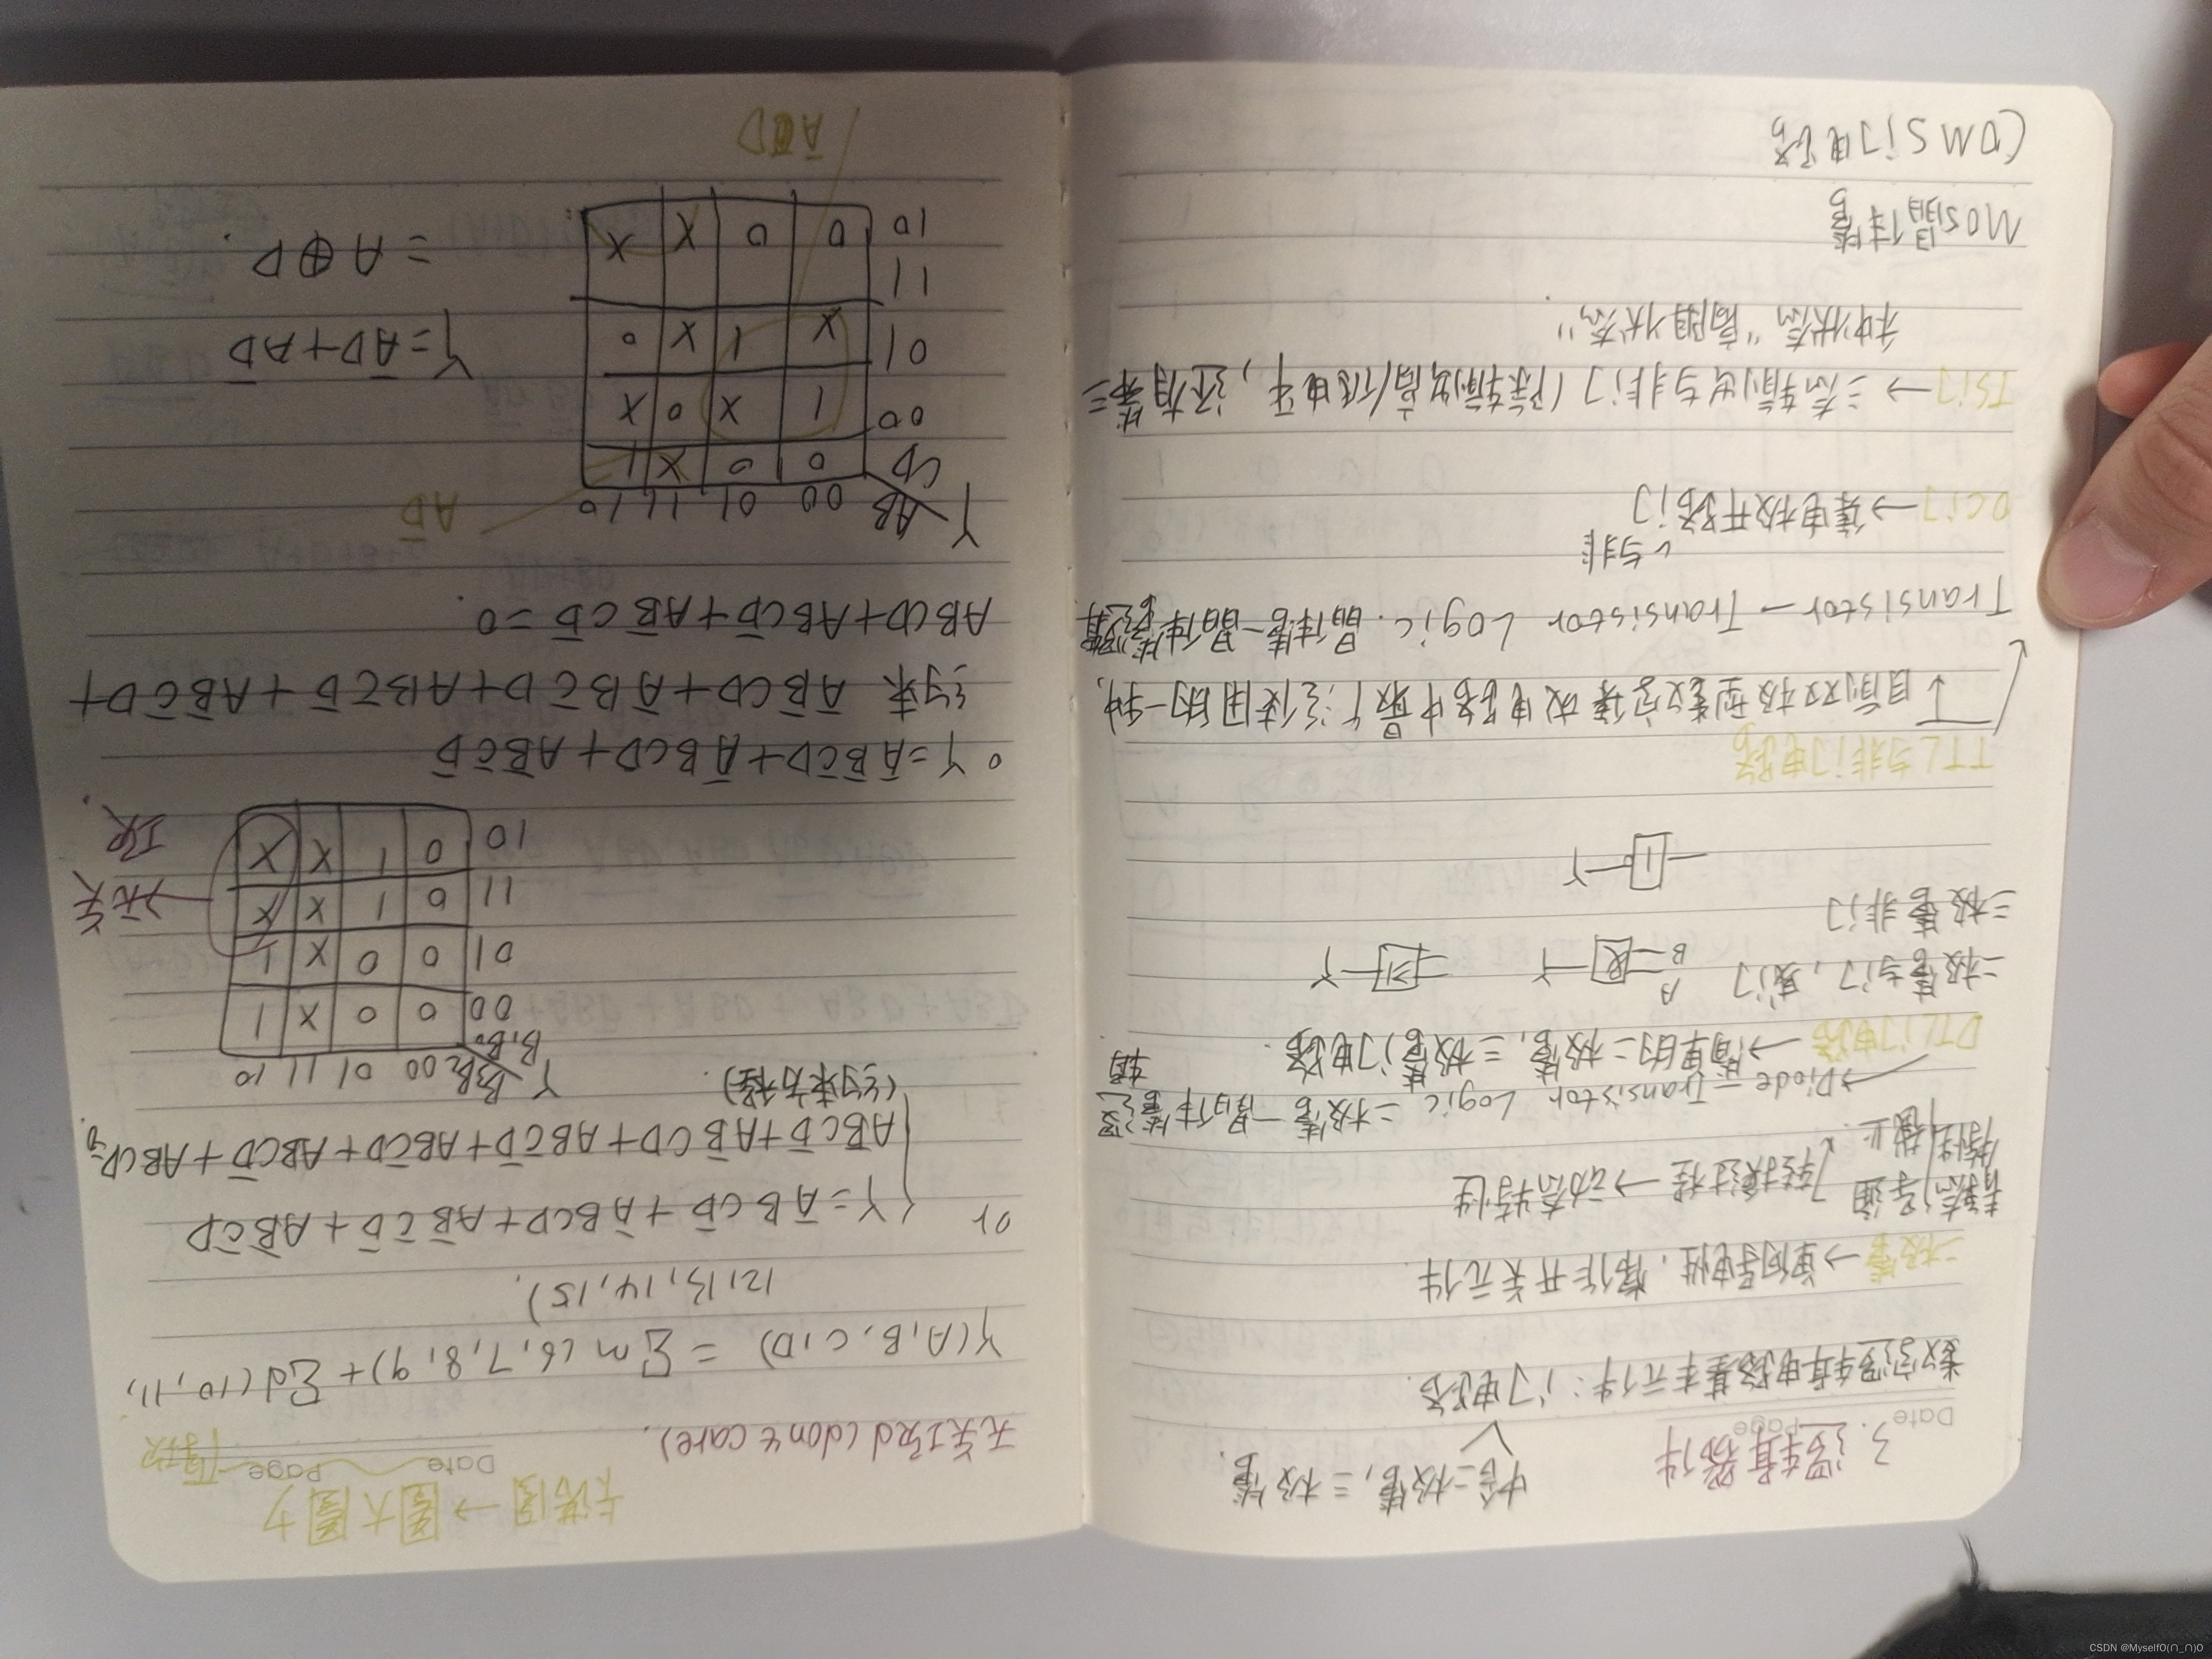 3. 逻辑器件
含二极管,三极管.
Date Page
数字逻辑电路基本元件:门电路.
二极管→单向导电性,悟作开关元件
静态 导通 转换过程→动态特性
特性 截止
→Diode-Transistor Logic 二极管-晶体管逻辑
DTL门电路→简单的二极管,三极管门电路.
二极管与门,或门 A B & Y ≥1 Y
三极管非门
1 Y
TTL与非门电路
目前双极型数字集成电路中最广泛使用的一种.
Transistor-Transistor Logic. 晶体管-晶体管逻辑
与非
OC门→集电极开路门
TS门→三态输出与非门(除输出高/低电平,还有第三
种状态"高阻状态".
MOS晶体管
COMS门电路
卡诺图→圈大圈少
Date Page
无关项d(don't care).
Y(A,B,C,D) = Σm(6,7,8,9)+Σd(10,11,
12,13,14,15).
or Y=A̅BCD̅+A̅BCD+AB̅C̅D̅+AB̅C̅D
AB̅CD̅+AB̅CD+ABC̅D̅+ABC̅D+ABCD̅+ABCD=0.
(约束方程).
Y B₃B₂ 00 01 11 10
B₁B₀
00 0 0 X 1
01 0 0 X 1
11 0 1 X X
10 0 1 X X
→无关
项.
Y=A̅B̅C̅D+A̅BCD+AB̅C̅D̅
约束 A̅B̅CD+A̅BC̅D+ABC̅D̅+AB̅C̅D+
ABCD+ABCD̅+AB̅CD̅=0.
Y AB 00 01 11 10
CD
00 0 0 X 1
1 X 0 X
01 X 1 X 0
11
10 0 0 X X
AD̅
A̅D
Y=A̅D+AD̅
=A⊕D.
CSDN @MyselfO(∩_∩)O